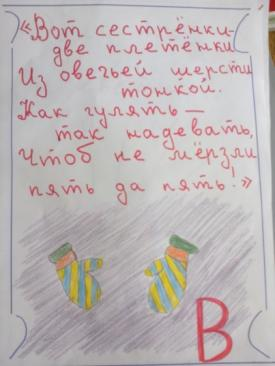 «Вот сестрёнки-
две плетёнки
Из овечьей шерсти
тонкой.
Как гулять —
так надевать,
Чтоб не мёрзли
пять да пять!»
В